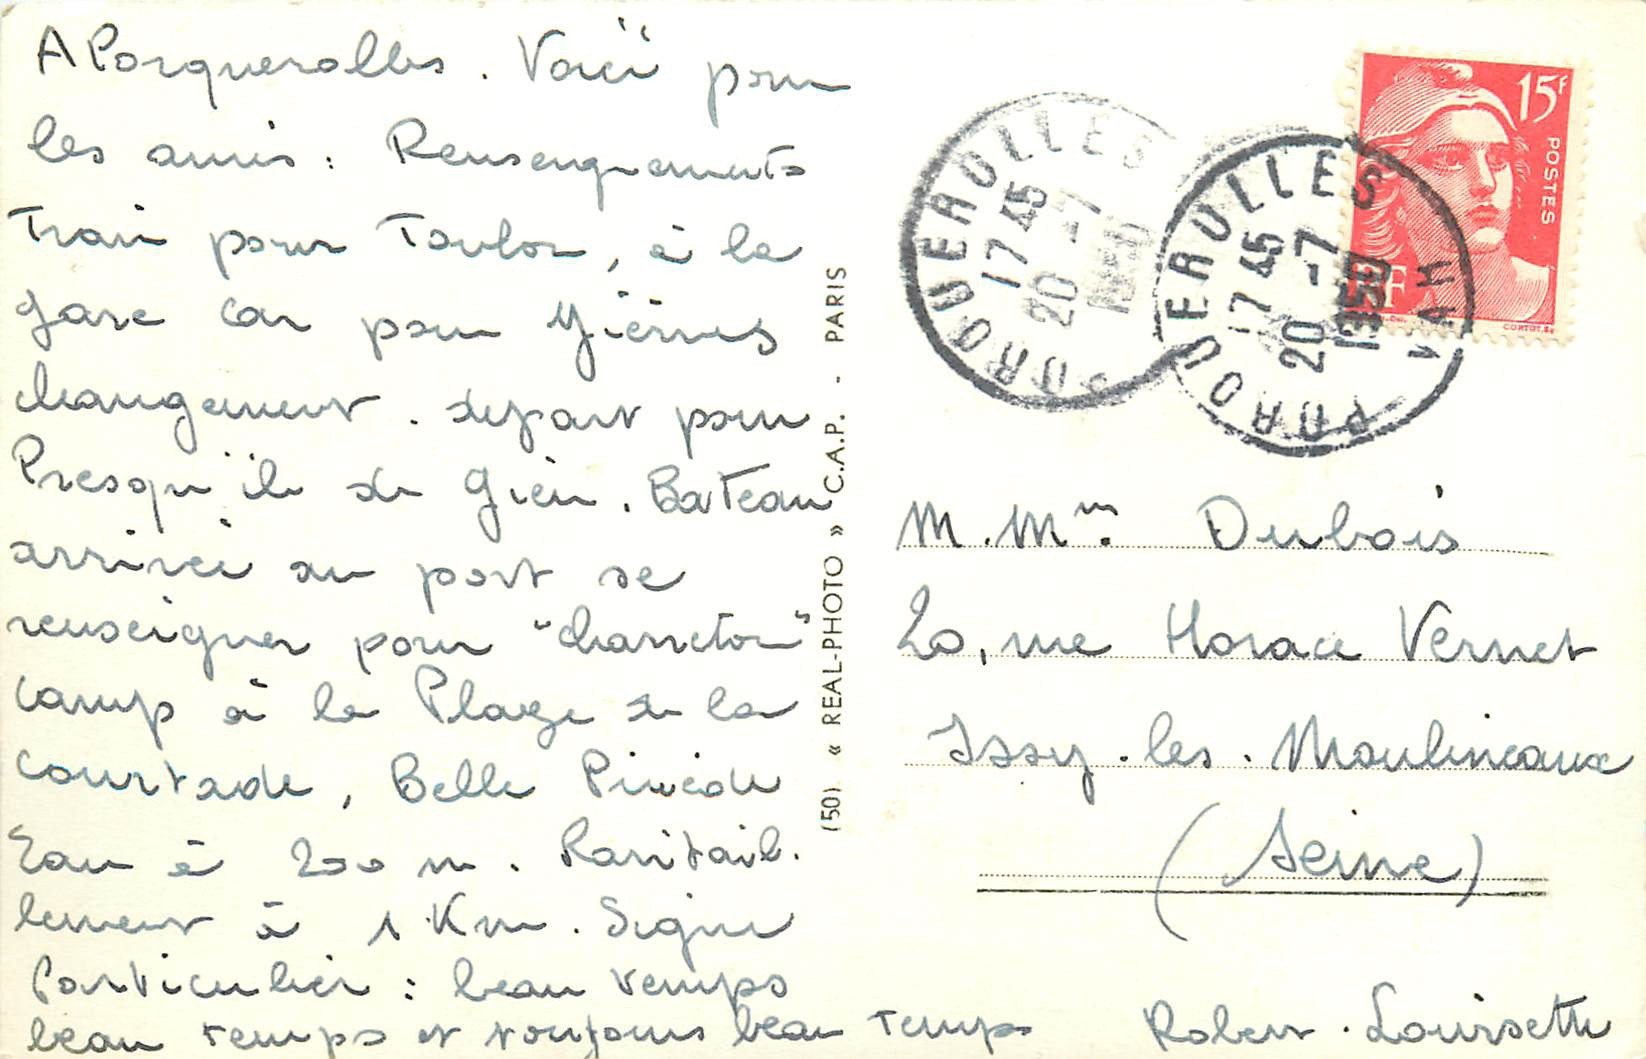 A Porquerolles. Voici pour
les amis : Renseignements
Train pour Toulon, à la
gare car pour Hières
changement. départ pour
Presqu'ile de Gien. Bateau
arrivée au port se
renseigner pour "charreton"
camp à la Plage de la
courtade, Belle Pinède
Eau à 200 m. Ravitail.
lement à 1 Km. Signe
Particulier : beau temps
beau temps et toujours beau temps
Robert. Louisette
(50) « REAL-PHOTO » C.A.P. - PARIS
PORQUEROLLES
17 45
20 -7
1950
PORQUEROLLES
17 45
20 -7
1950
VAR
15F
POSTES
RF
M. Mme. Dubois
20, rue Horace Vernet
Issy. les. Moulineaux
(Seine)